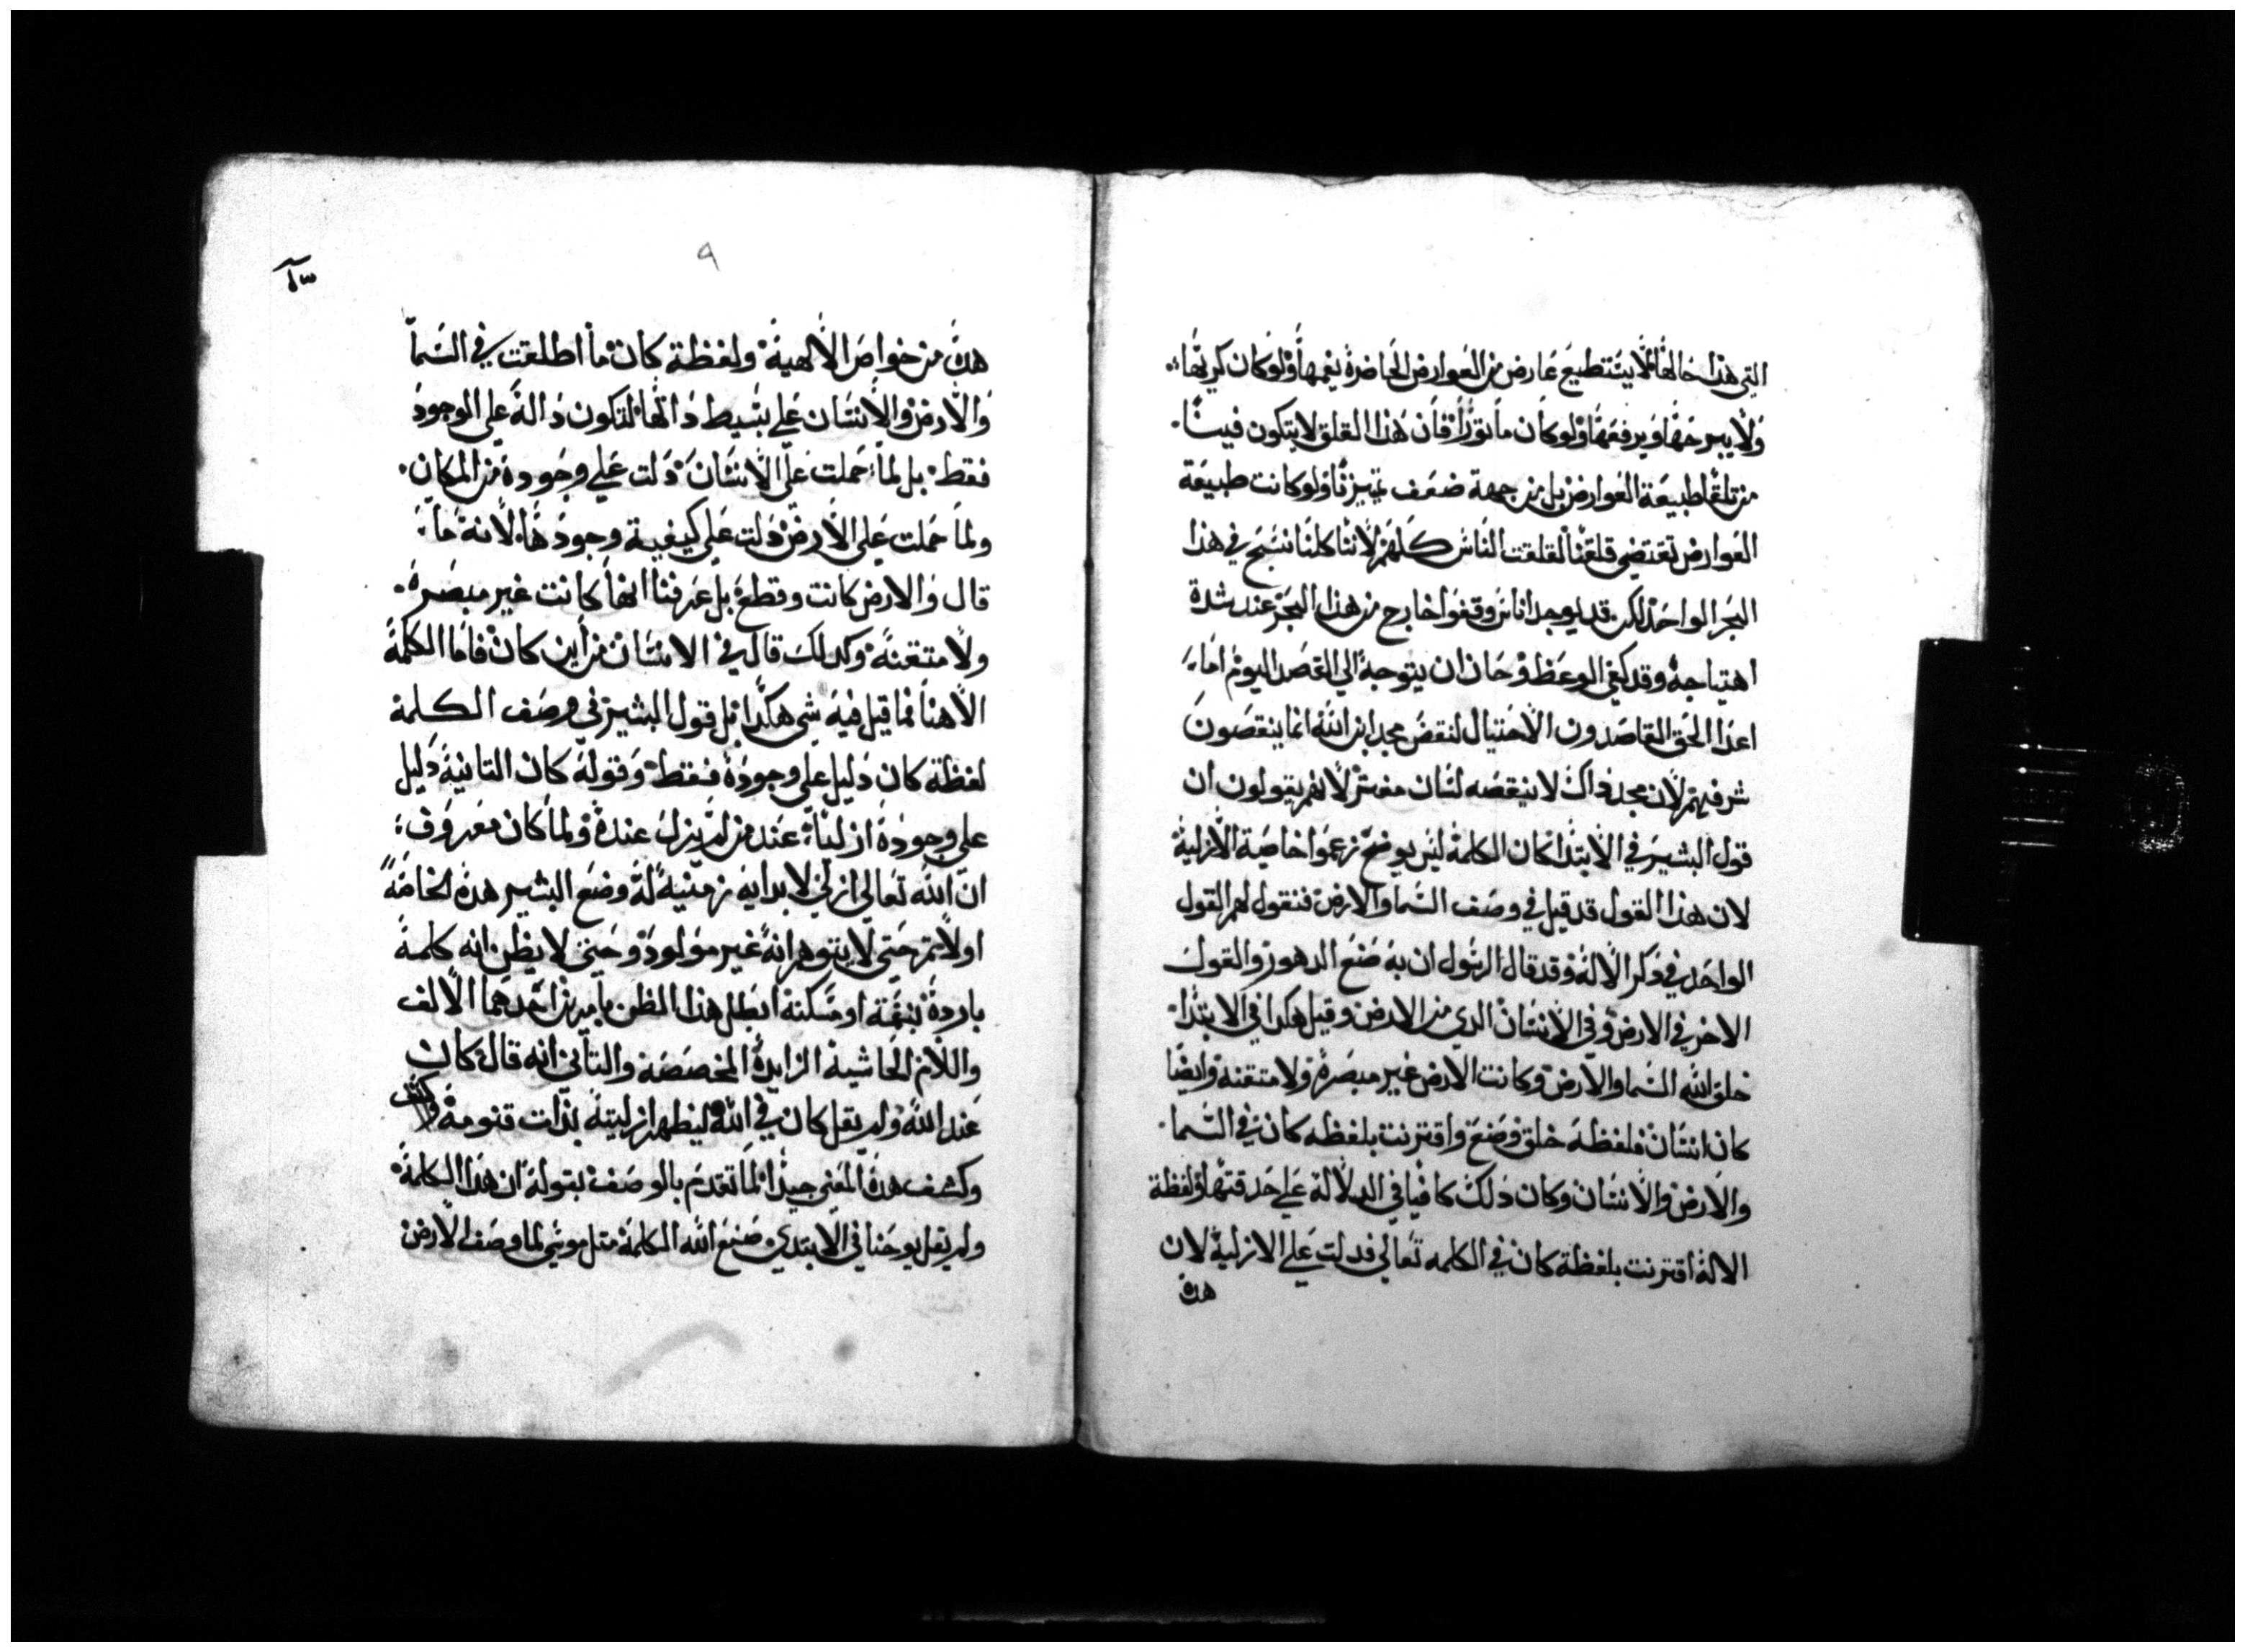 التي هذا حالها لا يستطيع عارض من العوارض الحاضرة يغمها ولو كان كريها
ولا يبرحها ويرفعها ولو كان ماثورا فان هذا القلق لا يتكون فينا
من تلقا طبيعة العوارض بل من جهة ضعف تميزنا ولو كانت طبيعة
العوارض تقتضي قلقنا لقلقت الناس كلهم لاننا كلنا نسبح في هذا
البحر الواحد لكن قد يوجد اناس وقفوا خارج من هذا البحر عند شدة
اهتياجه وقد كفي الوعظ وحان ان يتوجه الي القصد اليوم اما
اعدا الحق القاصدون الاحتيال لنقض مجد ابن الله انما ينقصون
شرفهم لان مجد ذاك لا ينقصه لسان مفتر لانهم يقولون ان
قول البشير في الابتدا كان الكلمة ليس يوضح زعموا خاصية الازلية
لان هذا القول قد قيل في وصف السما والارض فنقول لهم القول
الواحد في دكر الاله وقد قال الرسول ان به صنع الدهور والقول
الاخر في الارض وفي الانسان الدي من الارض وقيل هكدا في الابتدا
خلق الله السما والارض وكانت الارض غير مبصرة ولا متقنة وايضا
كان انسان فلفظة خلق وصنع واقترنت بلفظه كان في السما
والارض والانسان وكان دلك كافيا في الدلالة علي حدقتها ولفظة
الاله اقترنت بلفظة كان في الكلمه تعالي فدلت علي الازلية لان
هده
٩
٣٥
هده من خواص الالهية ولفظة كان ما اطلقت في السما
والارض والانسان علي بسيط داتها لتكون دالة علي الوجود
فقط بل لما حملت علي الانسان دلت علي وجوده من المكان
ولما حملت علي الارض دلت علي كيفية وجودها لانه ما
قال والارض كانت وقطع بل عرفنا انها كانت غير مبصره
ولا متقنة وكدلك قال في الانسان من اين كان فاما الكلمة
الاهنا فما قيل فيه شي هكدا بل قول البشير في وصف الكلمة
لفظة كان دليل علي وجوده فقط وقوله كان التانية دليل
علي وجوده ازليا عند من لم يزل عنده ولما كان معروف
ان الله تعالي ازلي لا بدايه زمنية له وضع البشير هده الخاصة
اولا تم حتي لا يتوهم انه غير مولود وحتي لا يظن انه كلمة
بارده بنغمة او مسكنة ابطل هدا الظن بامرين احدهما الالف
واللام الحاشية الزايدة المخصصة والتاني انه قال كان
عند الله ولم يقل كان في الله ليظهر ازليته بدات قنومه وكشف
وكشف هدة المعني جيدا لما تقدم بالوصف بقوله ان هدا الكلمة
ولم يقل يوحنا في الابتدي صنع الله الكلمة متل موسي لما وصف الارض